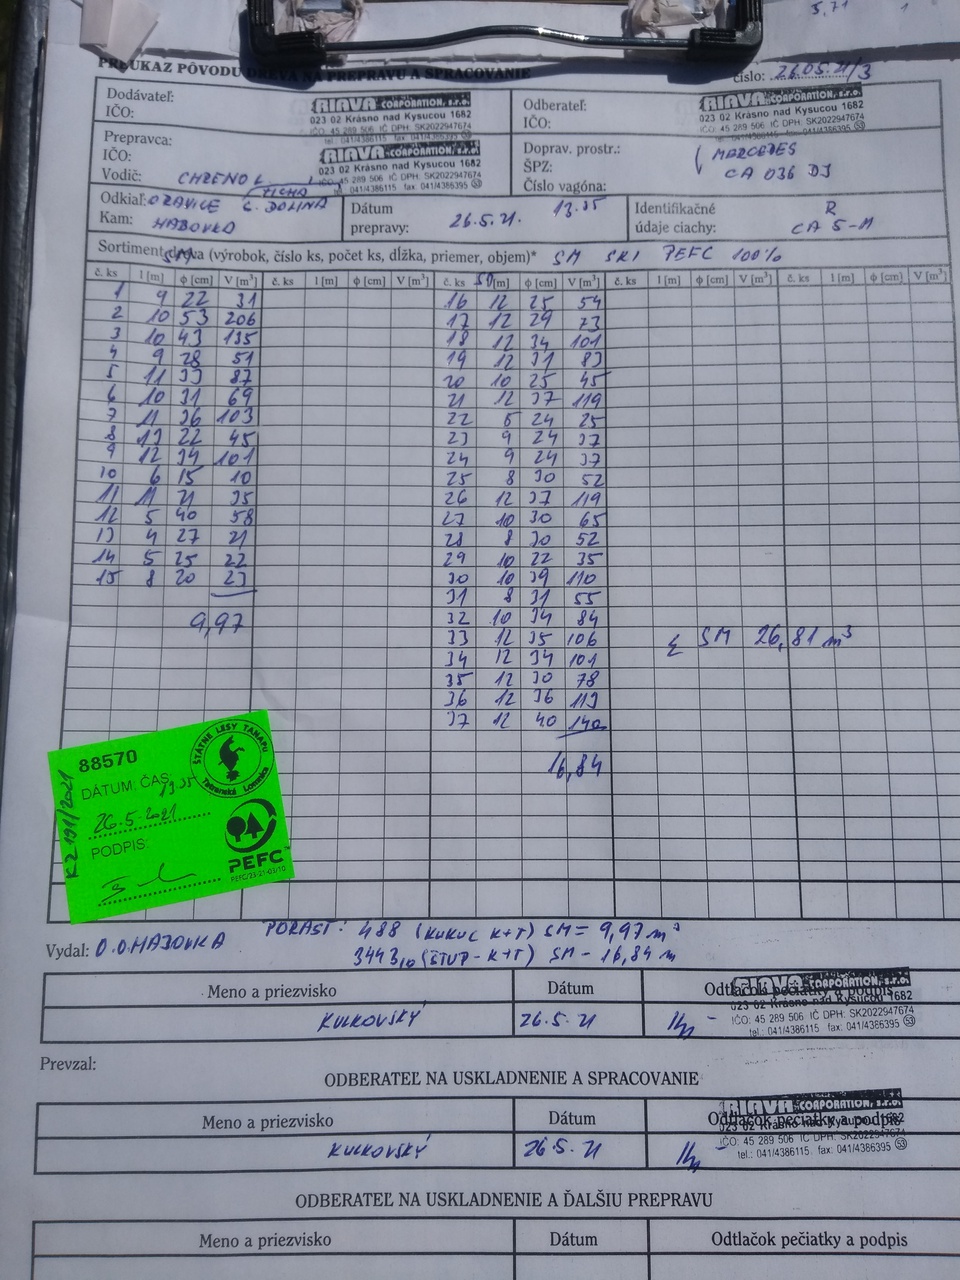 5,71 1
PREUKAZ PÔVODU DREVA NA PREPRAVU A SPRACOVANIE
číslo: 26.05.21/3
Dodávateľ:
IČO:
RIAVA CORPORATION, s.r.o.
023 02 Krásno nad Kysucou 1682
IČO: 45 289 506 IČ DPH: SK2022947674
tel.: 041/4386115 fax: 041/4386395 53
Odberateľ:
IČO:
RIAVA CORPORATION, s.r.o.
023 02 Krásno nad Kysucou 1682
IČO: 45 289 506 IČ DPH: SK2022947674
tel.: 041/4386115 fax: 041/4386395 53
Prepravca:
IČO:
Vodič:
RIAVA CORPORATION, s.r.o.
023 02 Krásno nad Kysucou 1682
IČO: 45 289 506 IČ DPH: SK2022947674
tel. 041/4386115 fax: 041/4386395 53
Doprav. prostr.: MERCEDES
ŠPZ: CA 036 DJ
Číslo vagóna:
Odkiaľ: ORAVICE TICHÁ DOLINA
Kam: HABOVKA
Dátum prepravy: 26.5.21. 13.35
Identifikačné údaje ciachy: R CA 5-M
Sortiment dreva (výrobok, číslo ks, počet ks, dĺžka, priemer, objem)* SM SKI PEFC 100%
SM
č. ks l [m] ϕ [cm] V [m³] č. ks l [m] ϕ [cm] V [m³] č. ks l [m] ϕ [cm] V [m³] č. ks l [m] ϕ [cm] V [m³] č. ks l [m] ϕ [cm] V [m³]
1 9 22 31 16 12 25 54
2 10 53 206 17 12 29 73
3 10 43 135 18 12 34 101
4 9 28 51 19 12 31 83
5 11 33 87 20 10 25 45
6 10 31 69 21 12 37 119
7 11 36 103 22 6 24 25
8 13 22 45 23 9 24 37
9 12 34 101 24 9 24 37
10 6 15 10 25 8 30 52
11 11 21 35 26 12 37 119
12 5 40 58 27 10 30 65
13 4 27 21 28 8 30 52
14 5 25 22 29 10 22 35
15 8 20 23 30 10 39 110
31 8 31 55
9,97 32 10 34 84
33 12 35 106 Σ SM 26,81 m³
34 12 34 101
35 12 30 78
36 12 36 113
37 12 40 140
16,84
88570
ŠTÁTNE LESY TANAPU
Tatranská Lomnica
DÁTUM: ČAS: 13.35
26.5.2021
PODPIS:
KZ 191/2021
PEFC
PEFC/23-21-03/10
Vydal: O.O. HABOVKA PORAST: 488 (KUKUC K+T) SM = 9,97 m³
3443 10 (ŠTUP - K+T) SM - 16,84 m
Meno a priezvisko Dátum Odtlačok pečiatky a podpis
KULKOVSKÝ 26.5.21
RIAVA CORPORATION, s.r.o.
023 02 Krásno nad Kysucou 1682
IČO: 45 289 506 IČ DPH: SK2022947674
tel.: 041/4386115 fax: 041/4386395 53
Prevzal:
ODBERATEĽ NA USKLADNENIE A SPRACOVANIE
Meno a priezvisko Dátum Odtlačok pečiatky a podpis
KULKOVSKÝ 26.5.21
RIAVA CORPORATION, s.r.o.
023 02 Krásno nad Kysucou 1682
IČO: 45 289 506 IČ DPH: SK2022947674
tel.: 041/4386115 fax: 041/4386395 53
ODBERATEĽ NA USKLADNENIE A ĎALŠIU PREPRAVU
Meno a priezvisko Dátum Odtlačok pečiatky a podpis